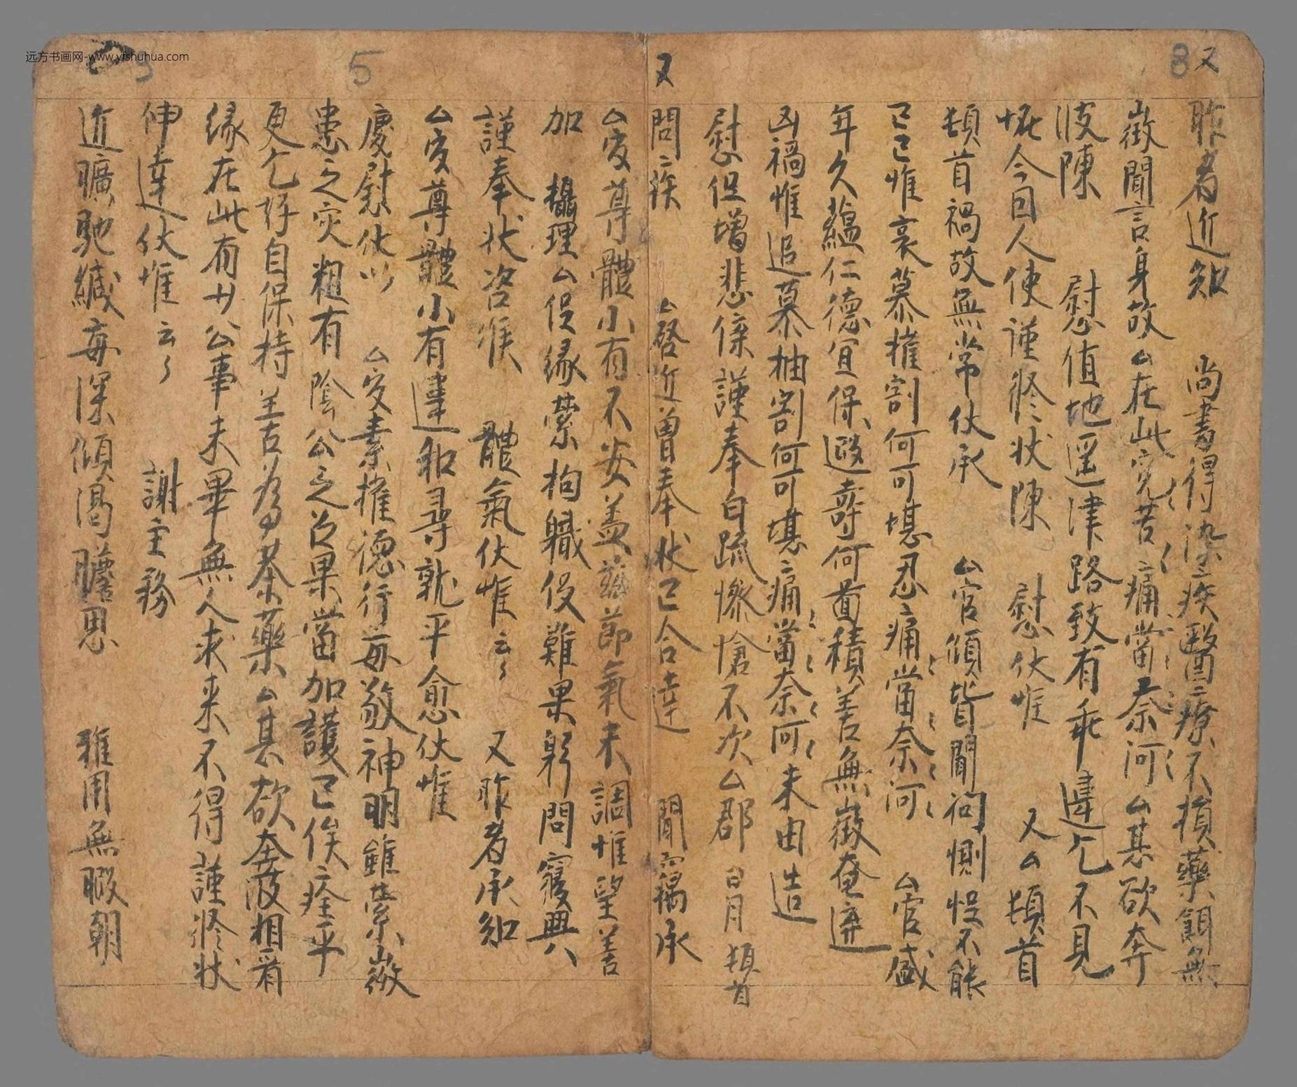 远方书画网-www.yishuhua.com
8又
昨者近知　尚書得染疾醫療不損藥餌無
徵聞言身故厶在此究苦痛當奈何厶甚欲奔
波陳　慰值地遥津路致有乖違乞不見
恠今因人使謹修状陳　慰伏惟　又厶頓首
頓首禍故無常伏承　厶官傾背聞問惻怛不能
已已惟哀慕摧割何可堪忍痛當奈何　厶官盛
年久蘊仁德宜保遐壽何啚積善無徵奄遘
凶禍惟追慕抽割何可堪痛當奈何未由造
慰但增悲係謹奉白疏慘愴不次厶郡　月日頓首
又
問疾　厶啓近曾奉状已合達　聞竊承
厶官尊體小有不安盖兹節氣未調惟望善
加　攝理厶但緣縈拘職役難果躬問寢興
謹奉状咨候　體氣伏惟云々　又昨者承知
厶官尊體小有違和尋就平愈伏惟
5
慶慰伏以　厶官素推德行每敬神明雖縈微
患之灾粗有陰公之句果當加護已俟痊平
更乞好自保持善為茶藥厶甚欲奔波相看
緣在此有少公事未畢無人求来不得謹修状
伸達伏惟云々　謝主務
近曠馳緘每深傾渴瞻思　雖用無暇朝